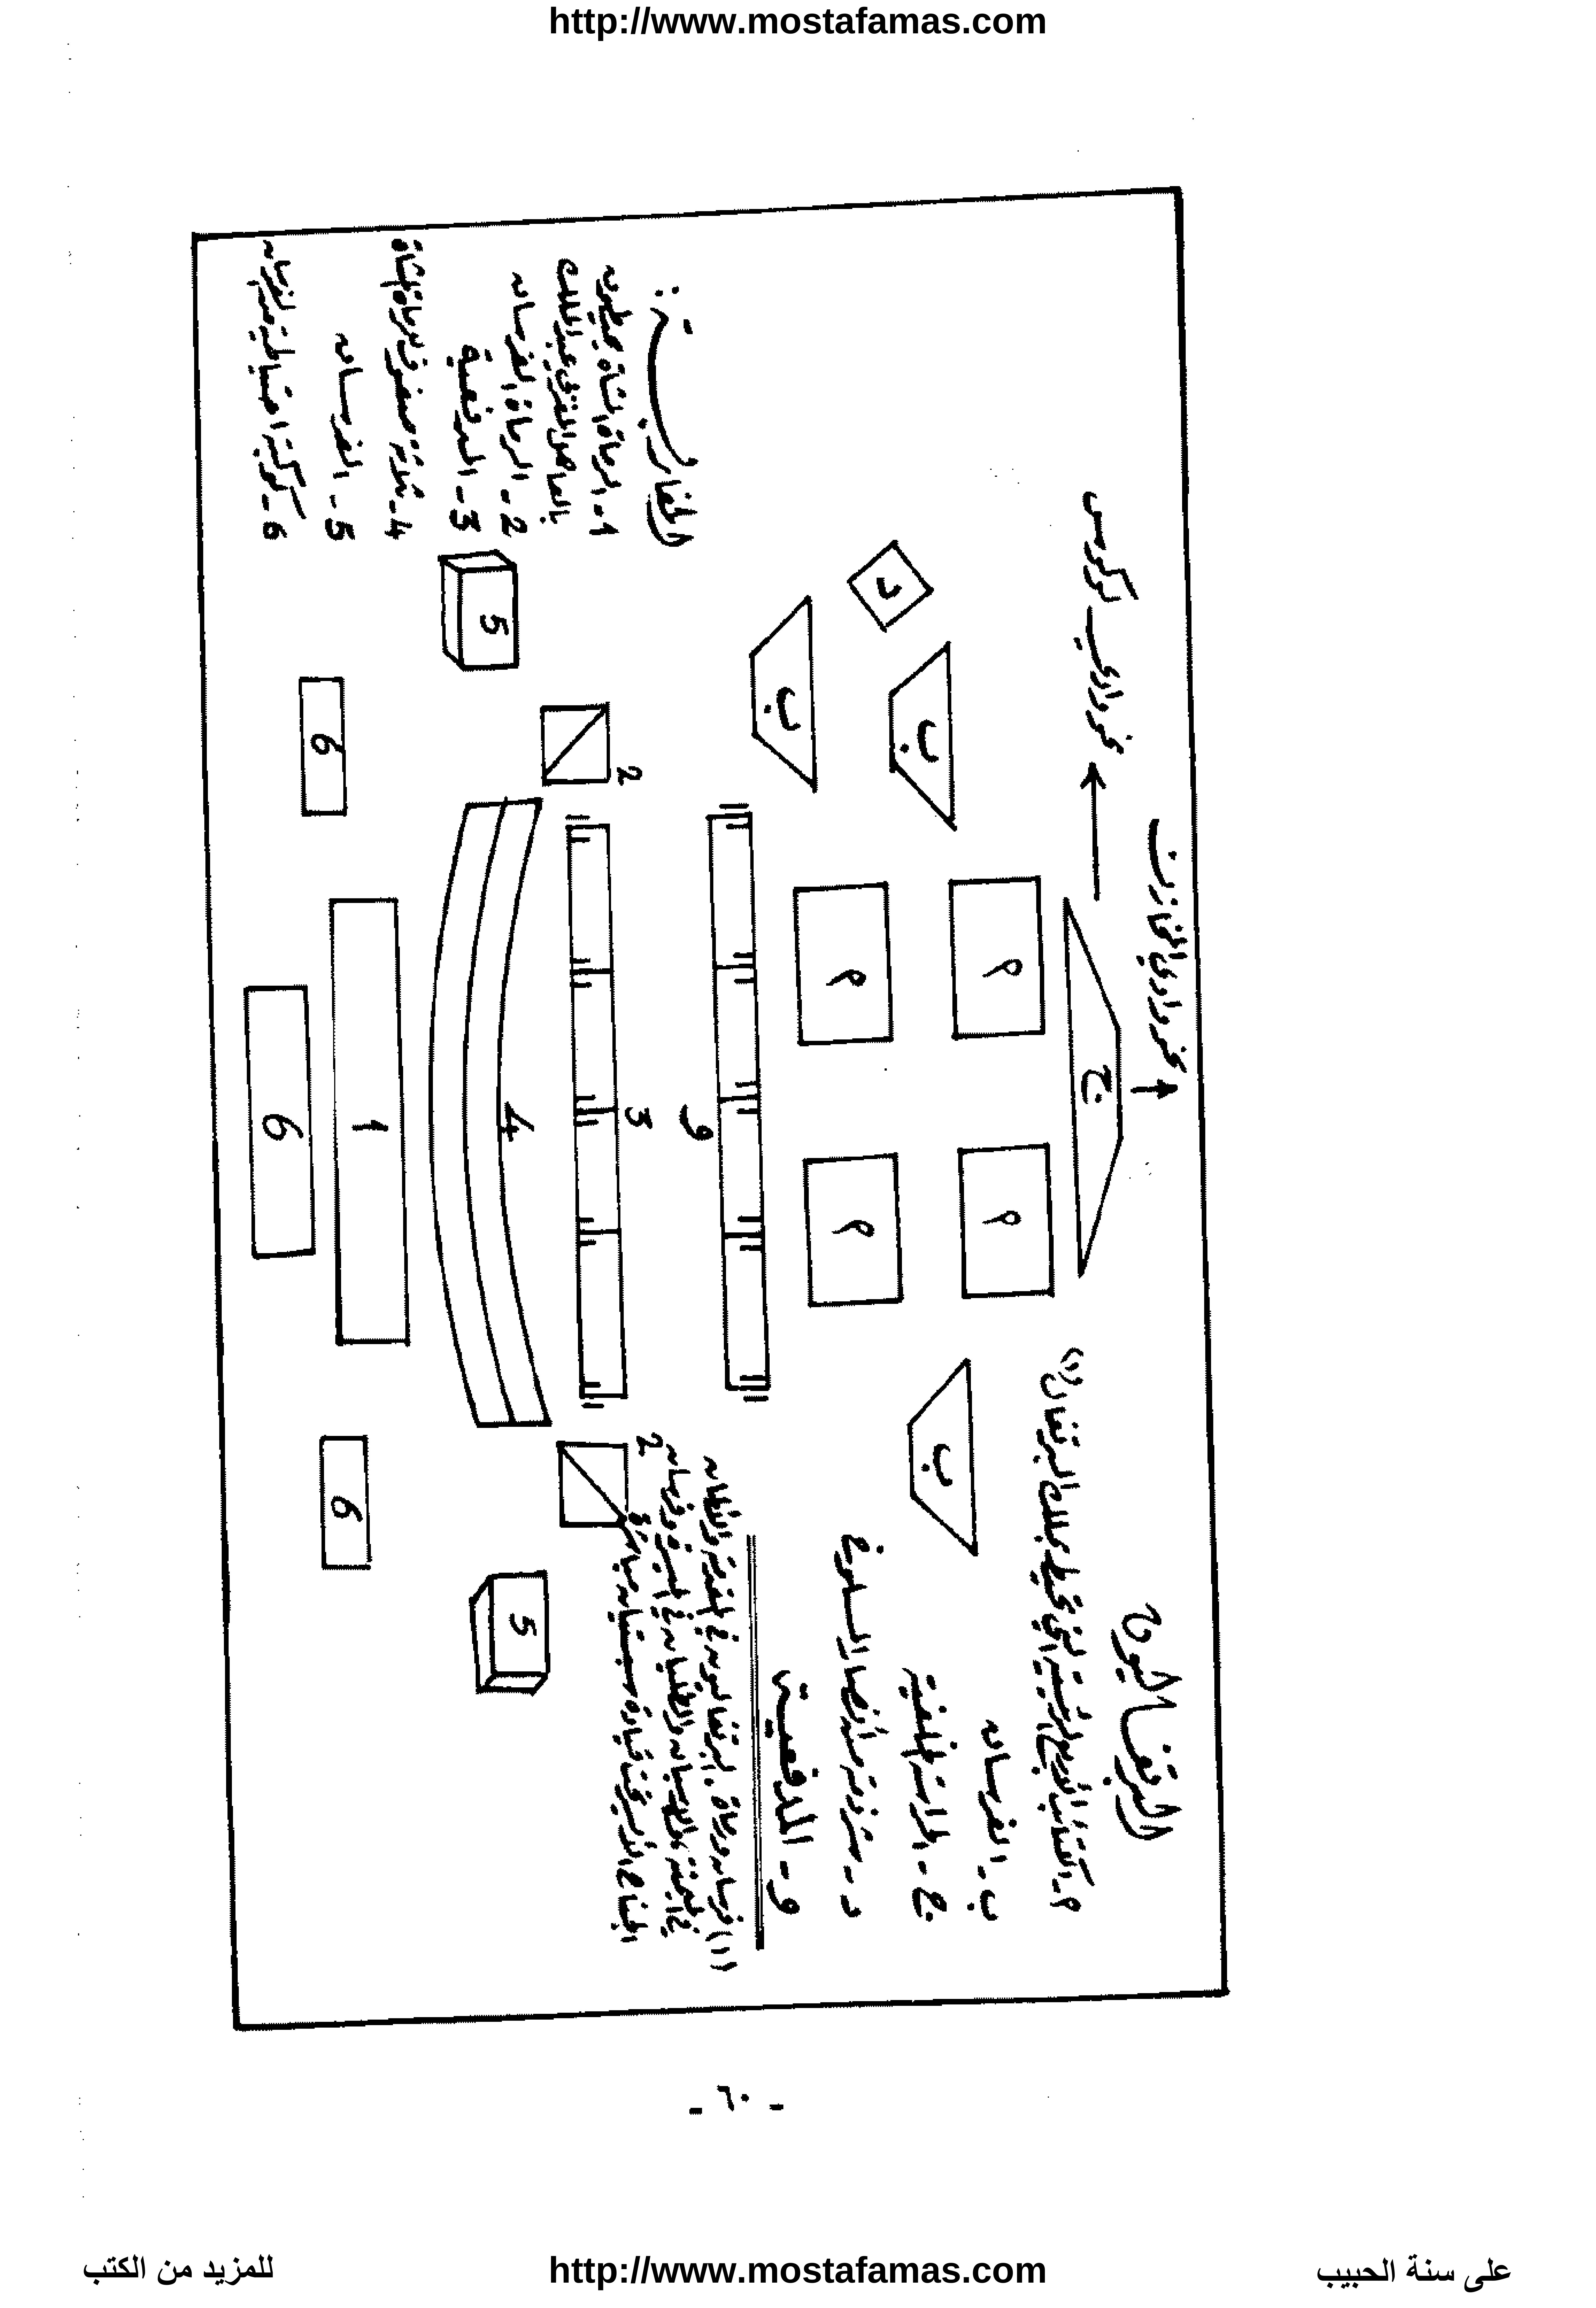 http://www.mostafamas.com
البرتغاليون
أ - الكتائب الأربع الرئيسية التي تحيط بملك البرتغال (١)
ب - الفرسان
ج - الحراسة الخلفية
د - شرذمة من أنصار المسلوخ
و - المدفعية
(١) فرسان ورماة. البرتغاليون في المقدمة والألمان
في الميمنة والإسبان والطليان في الميسرة وفرسان
الجناح الأيسر تحت قيادة سبستيان مباشرة
نحو وادي المخازن
نحو وادي لوكوس
ج
أ
أ
أ
أ
ب
ب
ب
د
و
3
2
2
4
5
5
1
6
6
6
المغاربة :
1 - الرماة المشاة محيطون
بالعاهل المغربي عبد الملك
2 - الرماة الفرسان
3 - المدفعية
4 - ثلاثة صفوف للرماة المشاة
5 - الفرسان
6 - كوكبة احتياطية من الفرسان
- ٦٠ -
على سنة الحبيب
http://www.mostafamas.com
للمزيد من الكتب